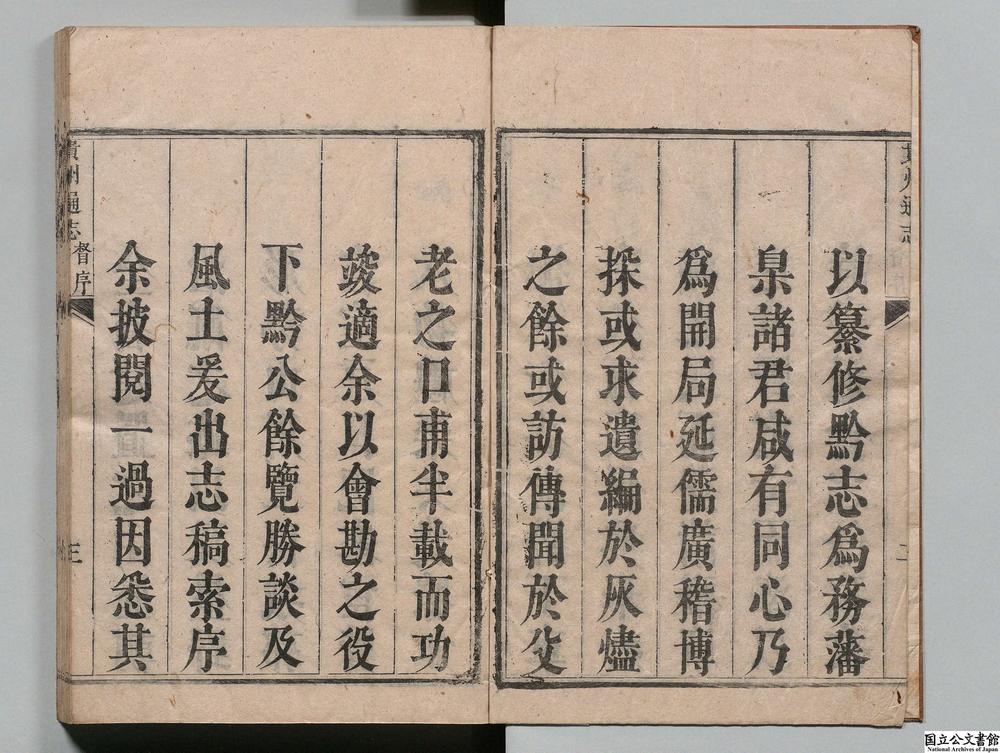 以纂修黔志爲務藩
臬諸君咸有同心乃
爲開局延儒廣稽博
採或求遺編於灰燼
之餘或訪傳聞於父
老之口甫半載而功
竣適余以會勘之役
下黔公餘覽勝談及
風土爰出志稿索序
余披閱一過因悉其
貴州通志
督序
三
国立公文書館
National Archives of Japan